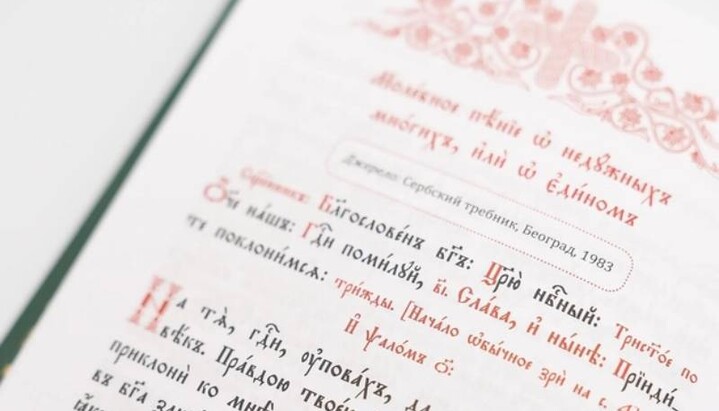 Моле́бное пѣ́нїе ѡ҆ недꙋ́жныхъ
мно́гихъ, и҆лѝ ѡ҆ є҆ди́номъ
Джерело: Сербский требник, Београд, 1983
Бл҃гослове́нъ бг҃ъ: Цр҃ю̀ нбⷭ҇ный: Трист҃о́е по
Ѻ҆́ч҃е на́шъ: Гдⷭ҇и поми́лꙋй, в҃і. Сла́ва, и҆ ны́нѣ: Прїиди́
поклони́мсѧ: три́жды. [Нача́ло ѡ҆бы́чное зрѝ на с.
И҆ ѱало́мъ ѻ҃:
На тѧ̀, гдⷭ҇и, ᲂу҆пова́хъ, да
вѣ́къ. Пра́вдою твое́ю
приклонѝ ко мнѣ̀
въ бг҃а